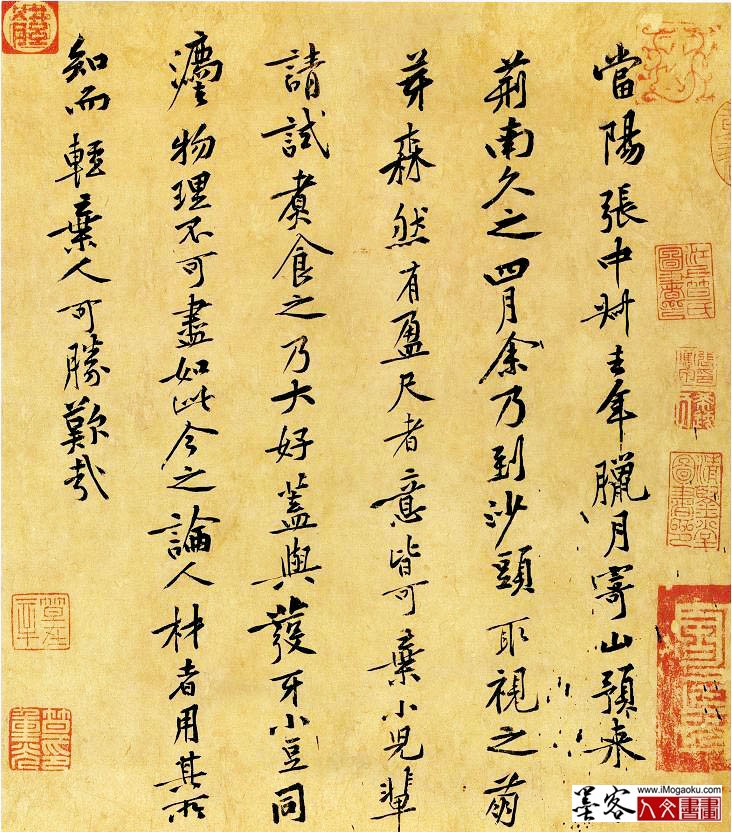 當陽張中叔去年臘月寄山預來
荊南久之四月余乃到沙頭取視之萌
芽森然有盈尺者意皆可棄小兒輩
請試煑食之乃大好蓋與發牙小豆同
灋物理不可盡如此今之論人材者用其所
知而輕棄人可勝歎哉
江上笪氏圖書印
www.iMogaoku.com
墨客
人文書畫